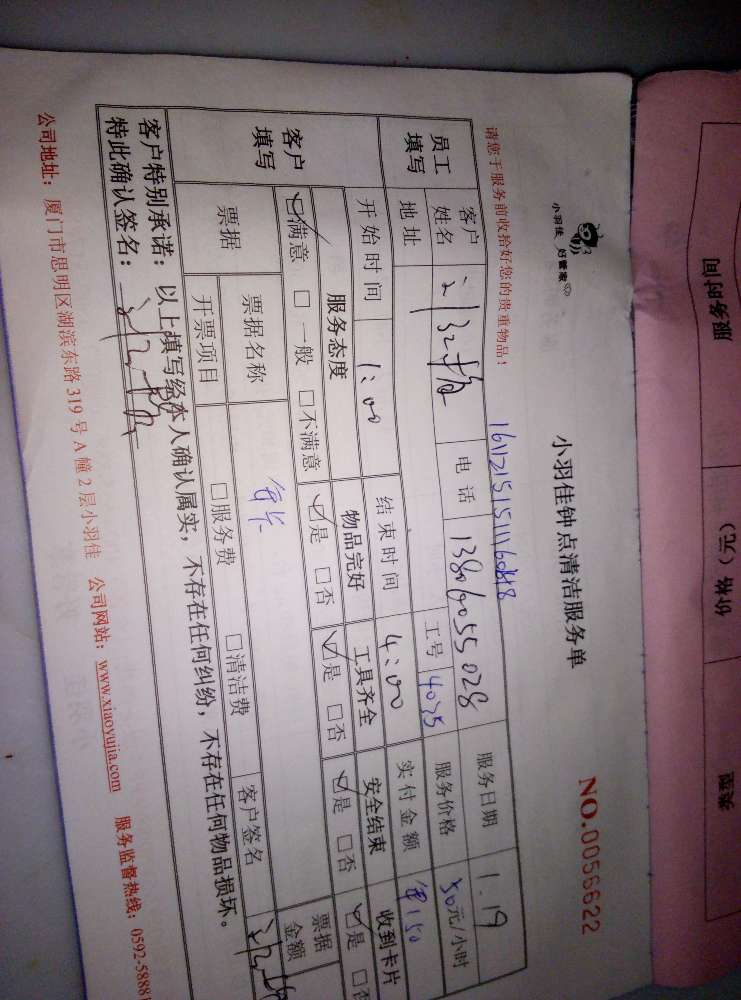 小羽佳 好管家
小羽佳钟点清洁服务单
NO.0056622
请您于服务前收拾好您的贵重物品!
员工填写
客户姓名
电话 13860055028
服务日期 1.19
地址
工号 4025
服务价格 50元/小时
客户填写
开始时间 1:00
结束时间 4:00
实付金额 150
服务态度 物品完好 工具齐全 安全结束 收到卡片
☑满意 □一般 □不满意 ☑是 □否 ☑是 □否 ☑是 □否 ☑是 □否
票据
票据名称
票据金额
开票项目 □服务费 □清洁费 客户签名
客户特别承诺:以上填写经本人确认属实,不存在任何纠纷,不存在任何物品损坏。
特此确认签名:
公司地址:厦门市思明区湖滨东路319号A幢2层小羽佳 公司网站:www.xiaoyujia.com 服务监督热线:0592-5888
服务时间 价格(元) 类型